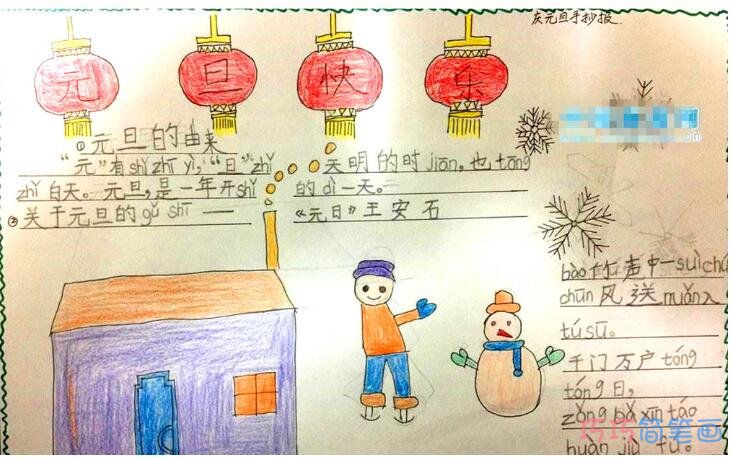 庆元旦手抄报
元旦快乐
①元旦的由来
"元"有shǐ zhī yì,"旦"zhǐ天明的时jiān,也tōng
zhǐ白天。元旦,是一年开shǐ的dì一天。
②关于元旦的gǔ shī——《元日》王安石
bào竹声中一suì chú
chūn风送nuǎn入
tú sū。
千门万户tóng
tóng日,
zǒng bǎ xīn táo
huàn jiù fú。
巧巧简笔画